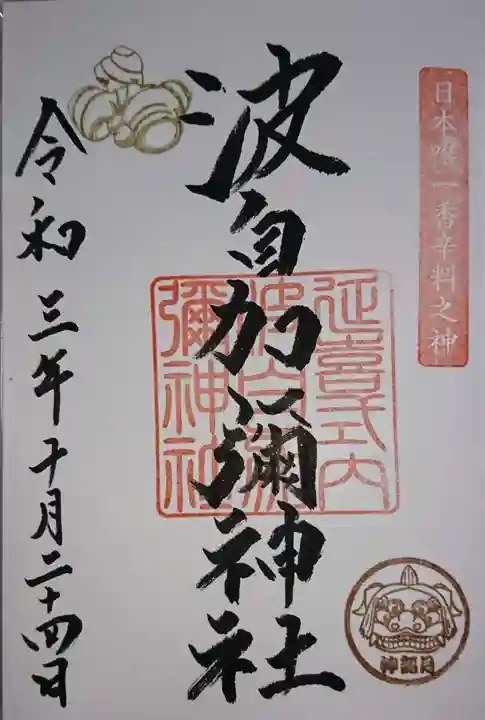 日本唯一香辛料之神
波自加彌神社
延喜式内
波自加
彌神社
令和三年十月二十四日